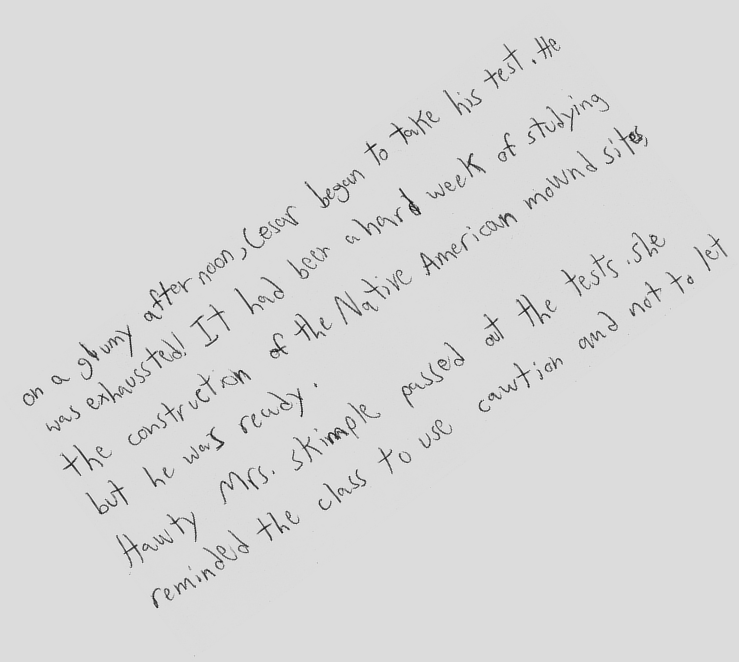 on a glumy after noon, Cesar began to take his test. He
was exhaussted! It had been a hard week of studying
the construction of the Native American mownd sites,
but he was ready.
Hawty Mrs. skimple passed out the tests. she
reminded the class to use cawtion and not to let